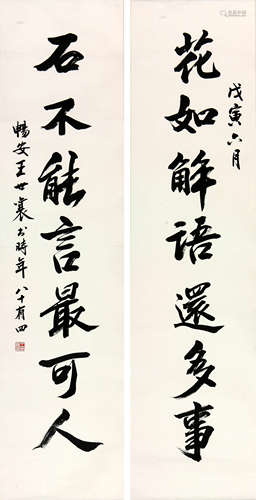 花如解语還多事
戊寅六月
石不能言最可人
暢安王世襄書時年八十有四